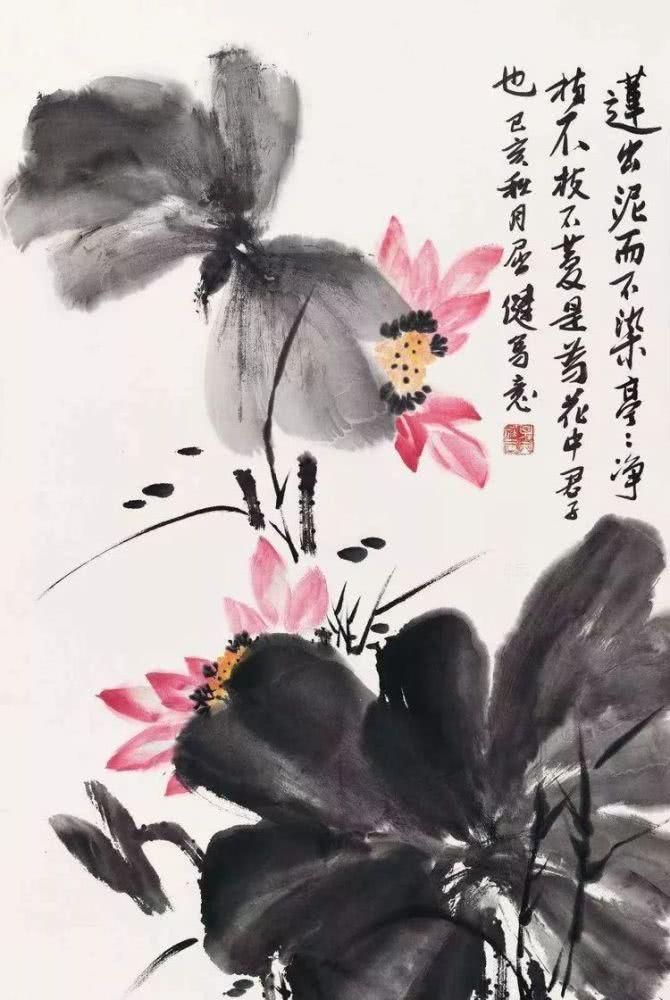 蓮出泥而不染亭〻净
植不枝不蔓是為花中君子
也 己亥秋月屈健写意